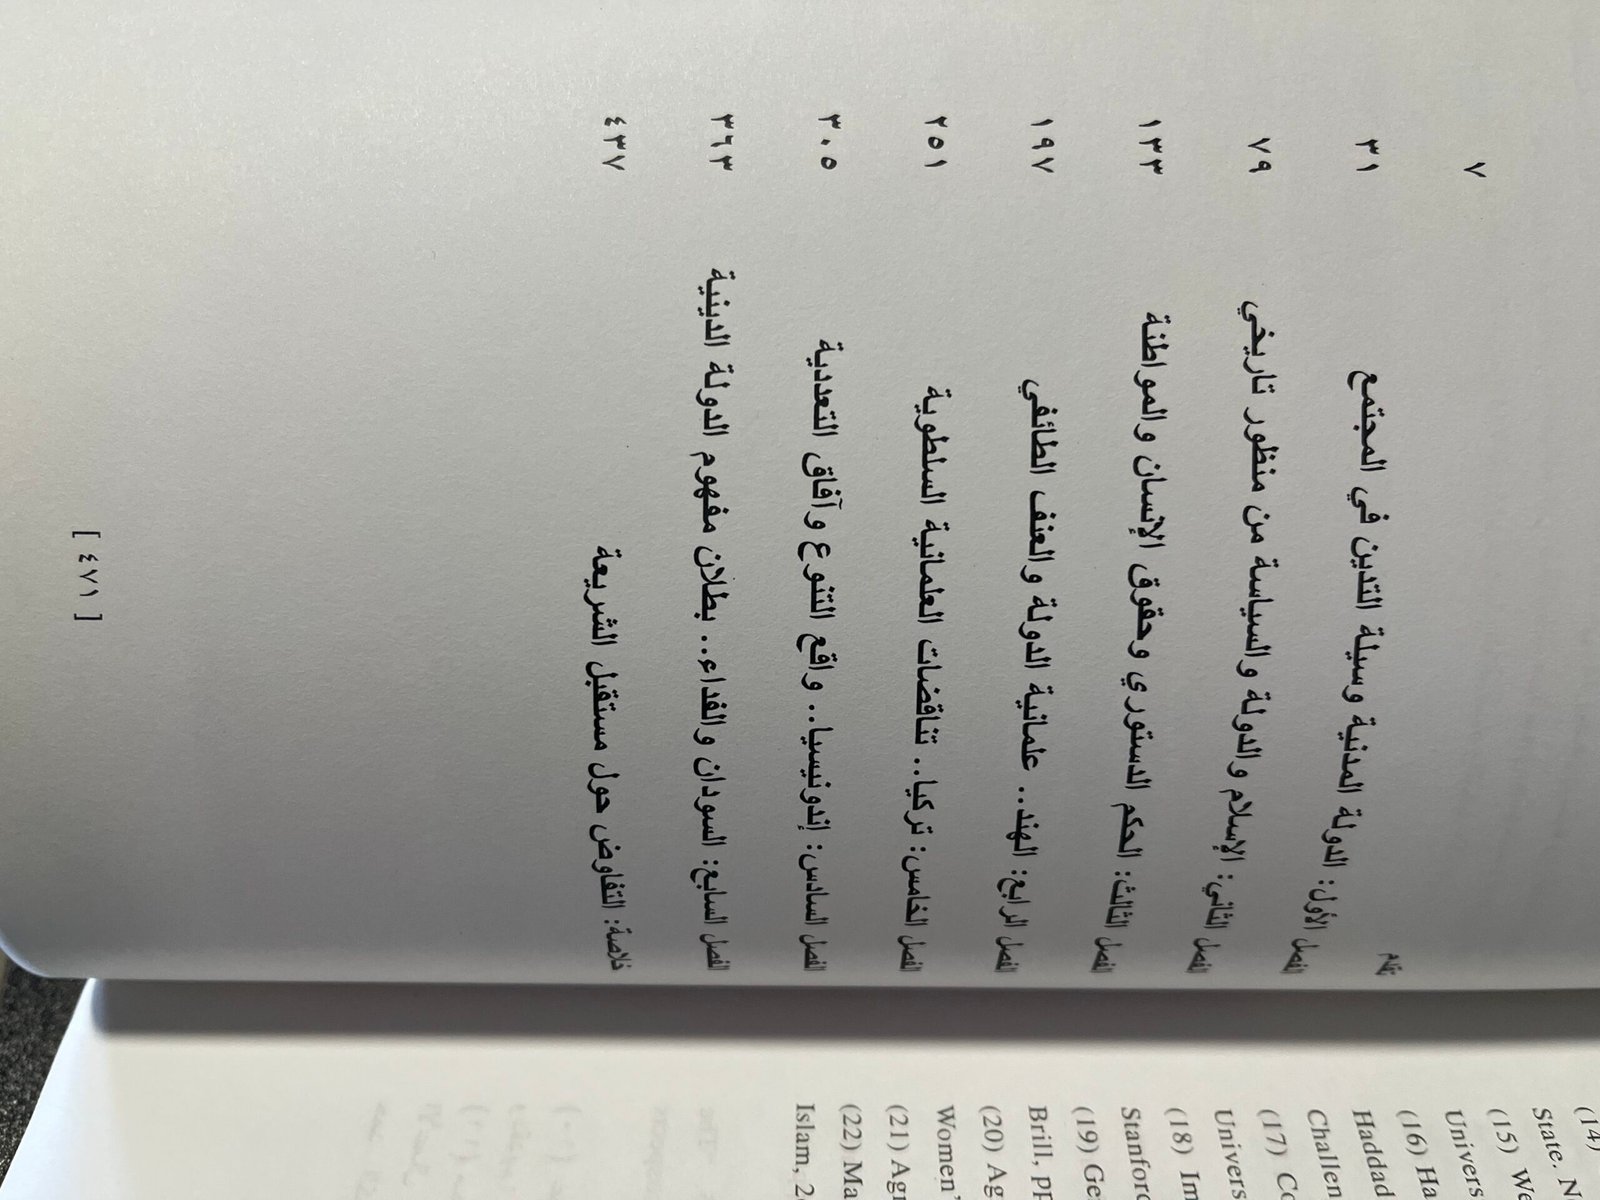 تقديم ٧
الفصل الأول: الدولة المدنية وسيلة التدين في المجتمع ٣١
الفصل الثاني: الإسلام والدولة والسياسة من منظور تاريخي ٧٩
الفصل الثالث: الحكم الدستوري وحقوق الإنسان والمواطنة ١٣٣
الفصل الرابع: الهند.. علمانية الدولة والعنف الطائفي ١٩٧
الفصل الخامس: تركيا.. تناقضات العلمانية السلطوية ٢٥١
الفصل السادس: إندونيسيا.. واقع التنوع وآفاق التعددية ٣٠٥
الفصل السابع: السودان والفداء.. بطلان مفهوم الدولة الدينية ٣٦٣
خلاصة: التفاوض حول مستقبل الشريعة ٤٣٧
[ ٤٧١ ]
(14)
State. N
(15) W
Univers
(16) Ha
Haddad
Challen
(17) Co
Univers
(18) Im
Stanford
(19) Ge
Brill, pp
(20) Ag
Women'
(21) Agr
(22) Ma
Islam, 2